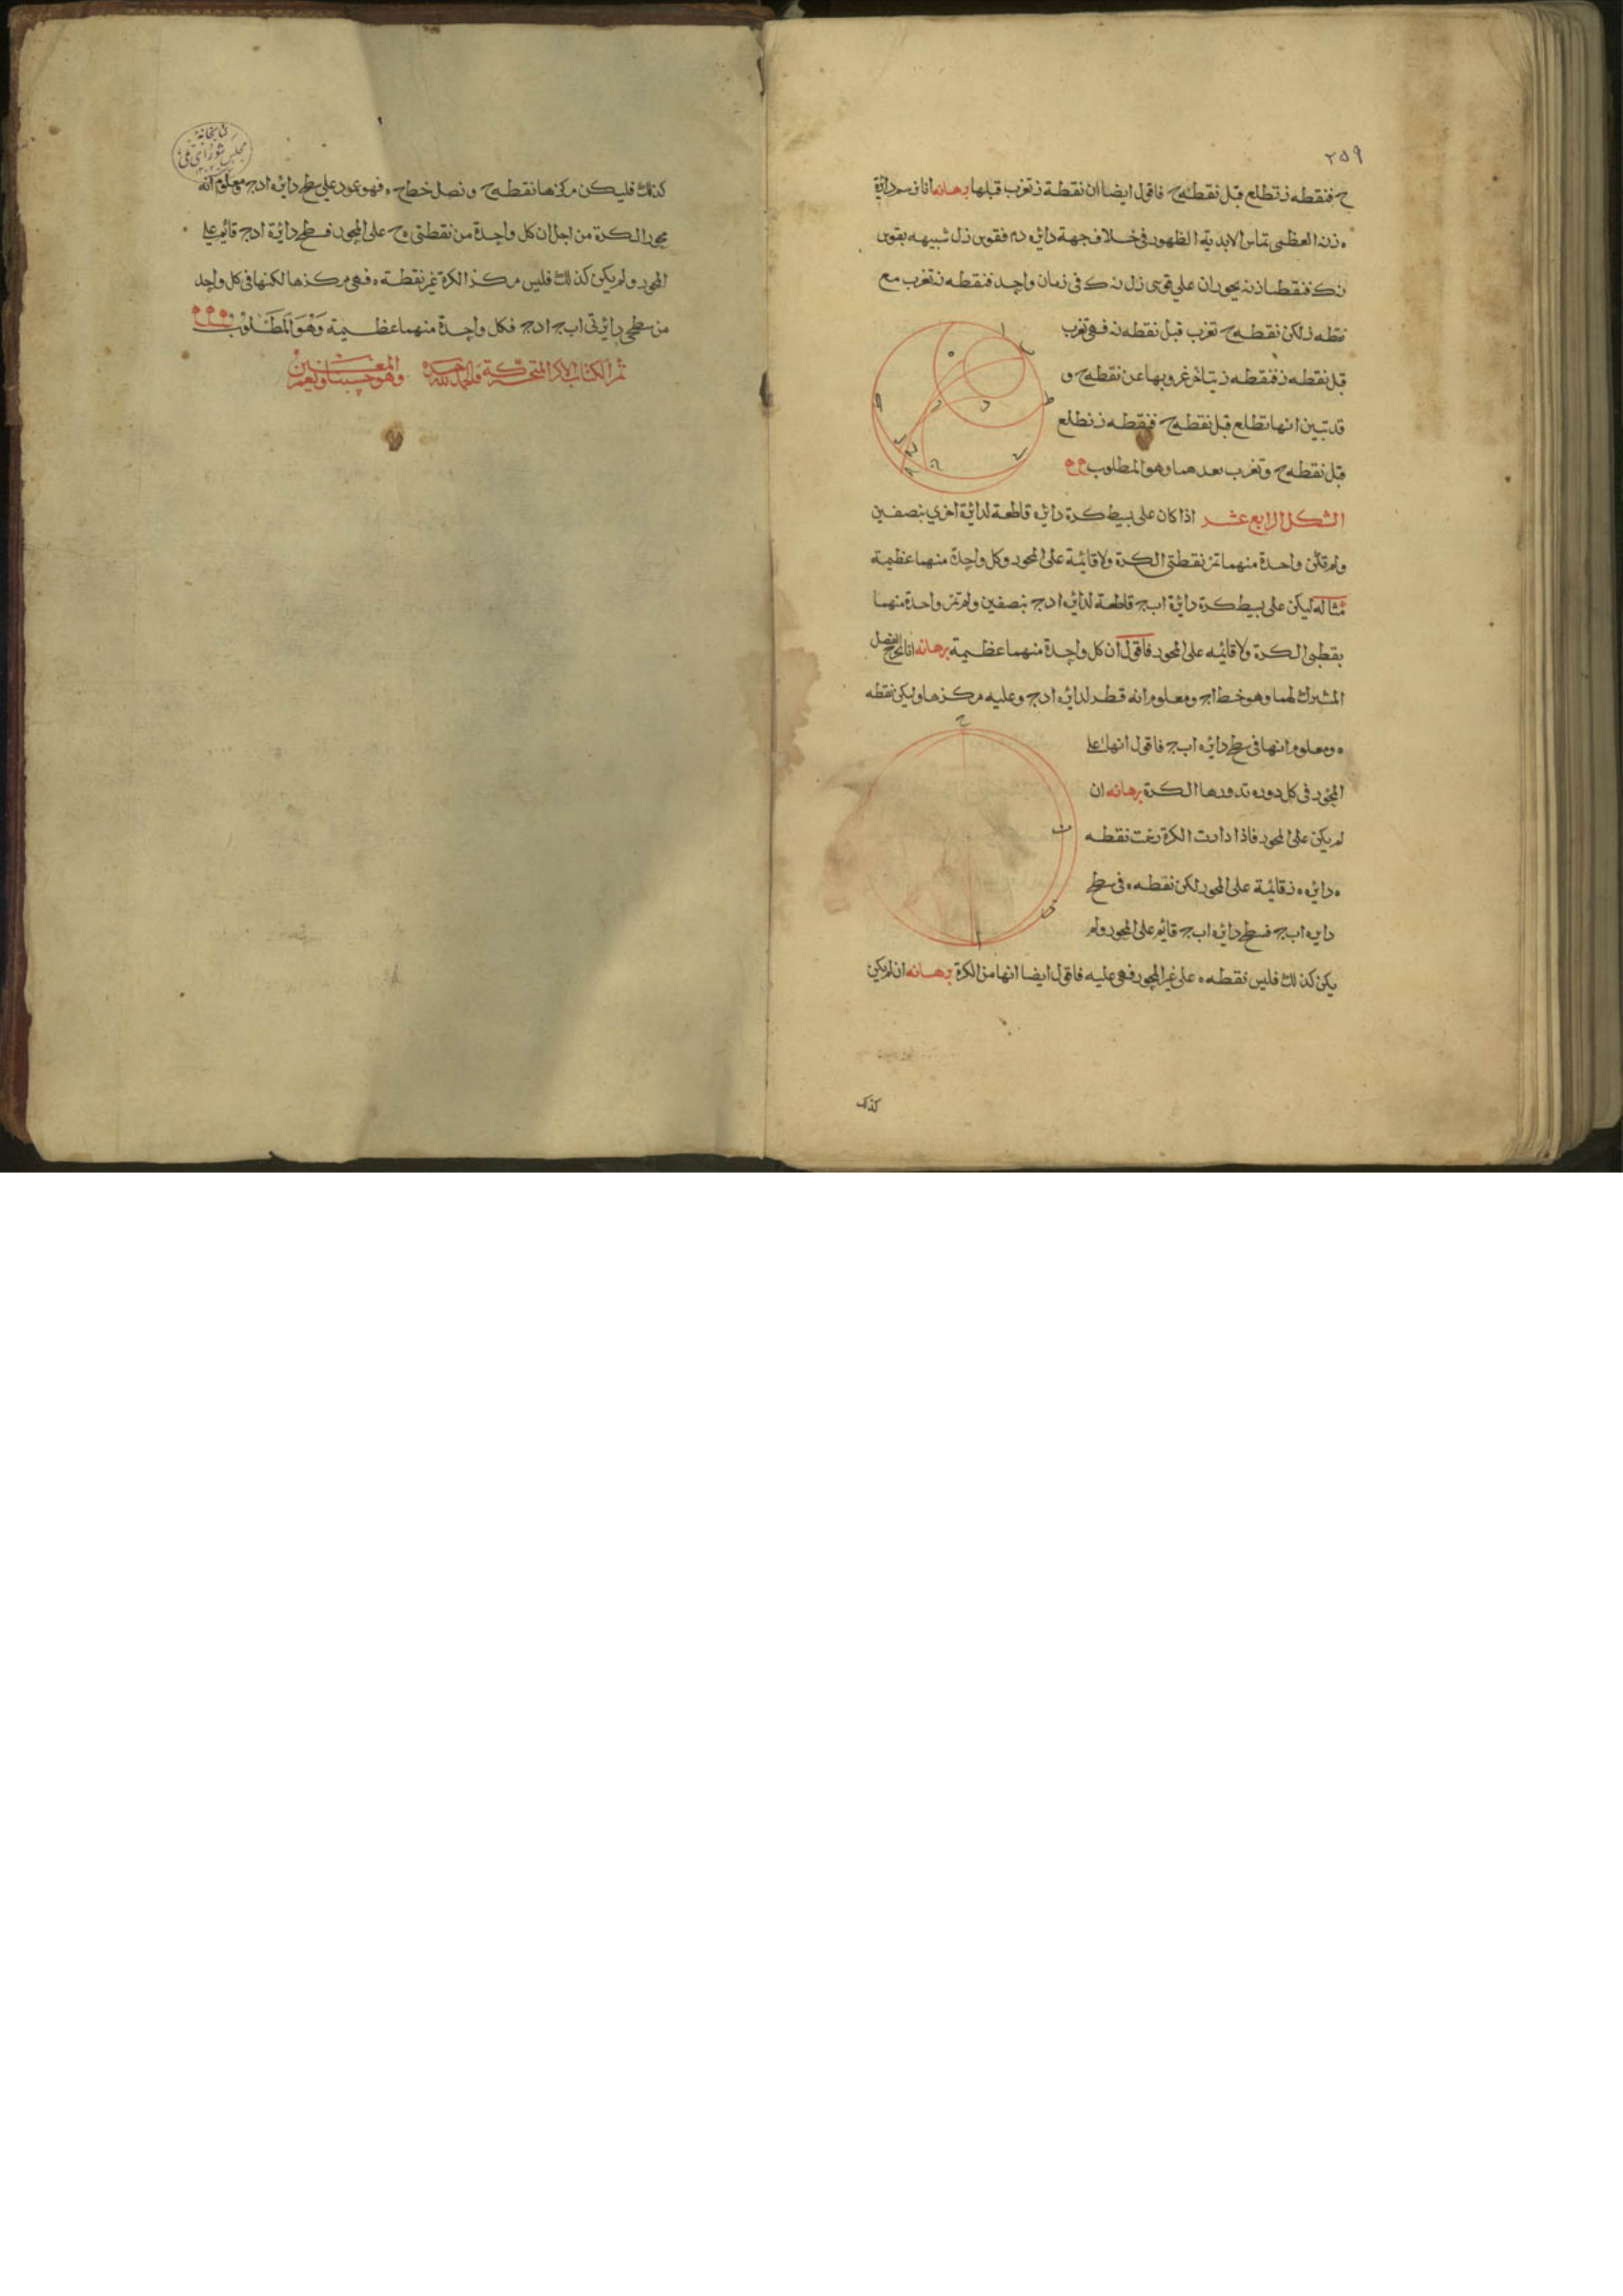 ٢٥٩
ح فنقطه ز تطلع قبل نقطه ح فاقول ايضا ان نقطة ز تغرب قبلها برهانه انا نرسم دائرة
ه ز ن العظمى تماس الابدية الظهور فى خلاف جهة دائره د م فقوس ز ل شبيهه بقوس
ن ك فنقطتا ز ن يحوران على قوسى ز ل ن ك فى زمان واحد فنقطه ن تغرب مع
نقطه ز لكن نقطه ح تغرب قبل نقطه ن فهى تغرب
قبل نقطه ز فنقطه ز يتاخر غروبها عن نقطه ح و
قد تبين انها تطلع قبل نقطه ح فنقطه ز تطلع
قبل نقطه ح وتغرب بعدها وهو المطلوب
الشكل الرابع عشر اذا كان على بسيط كرة دائره قاطعة لدائرة اخرى بنصفين
ولم تكن واحدة منهما تمر بقطبى الكرة ولا قائمة على المحور وكل واحدة منهما عظيمة
مثاله ليكن على بسيط كرة دائرة اب ج قاطعة لدائره ا د ج بنصفين ولم تمر واحدة منهما
بقطبى الكرة ولا قائمه على المحور فاقول ان كل واحدة منهما عظيمة برهانه انا نخرج الفصل
المشترك لهما وهو خط ا ج ومعلوم انه قطر لدائره ا د ج وعليه مركزها وليكن نقطه
ه ومعلوم انها فى سطح دائره اب ج فاقول انها على
المحور فى كل دوره تدورها الكرة برهانه ان
لم يكن على المحور فاذا دارت الكرة رسمت نقطه
ه دائره ه ز قائمة على المحور لكن نقطه ه فى سطح
دايره اب ج فسطح دائره اب ج قايم على المحور ولم
يكن كذلك فليس نقطه ه على غير المحور فهى عليه فاقول ايضا انها مركز الكرة برهانه ان لم يكن
كذلك
كذلك فليكن مركزها نقطه ح ونصل خط ح ه فهو عمود على سطح دايرة ا د ج ومعلوم انه
محور الكرة من اجل ان كل واحدة من نقطتى ه ح على المحور فسطح دائرة ا د ج قائم على
المحور ولم يكن كذلك فليس مركز الكرة غير نقطة ه فهى مركزها لكنها فى كل واحد
من سطحى دايرتى اب ج ا د ج فكل واحدة منهما عظيمة وهو المطلوب
تم الكتاب الاكر المتحركة والحمد لله وحده وهو حسبنا ونعم المعين